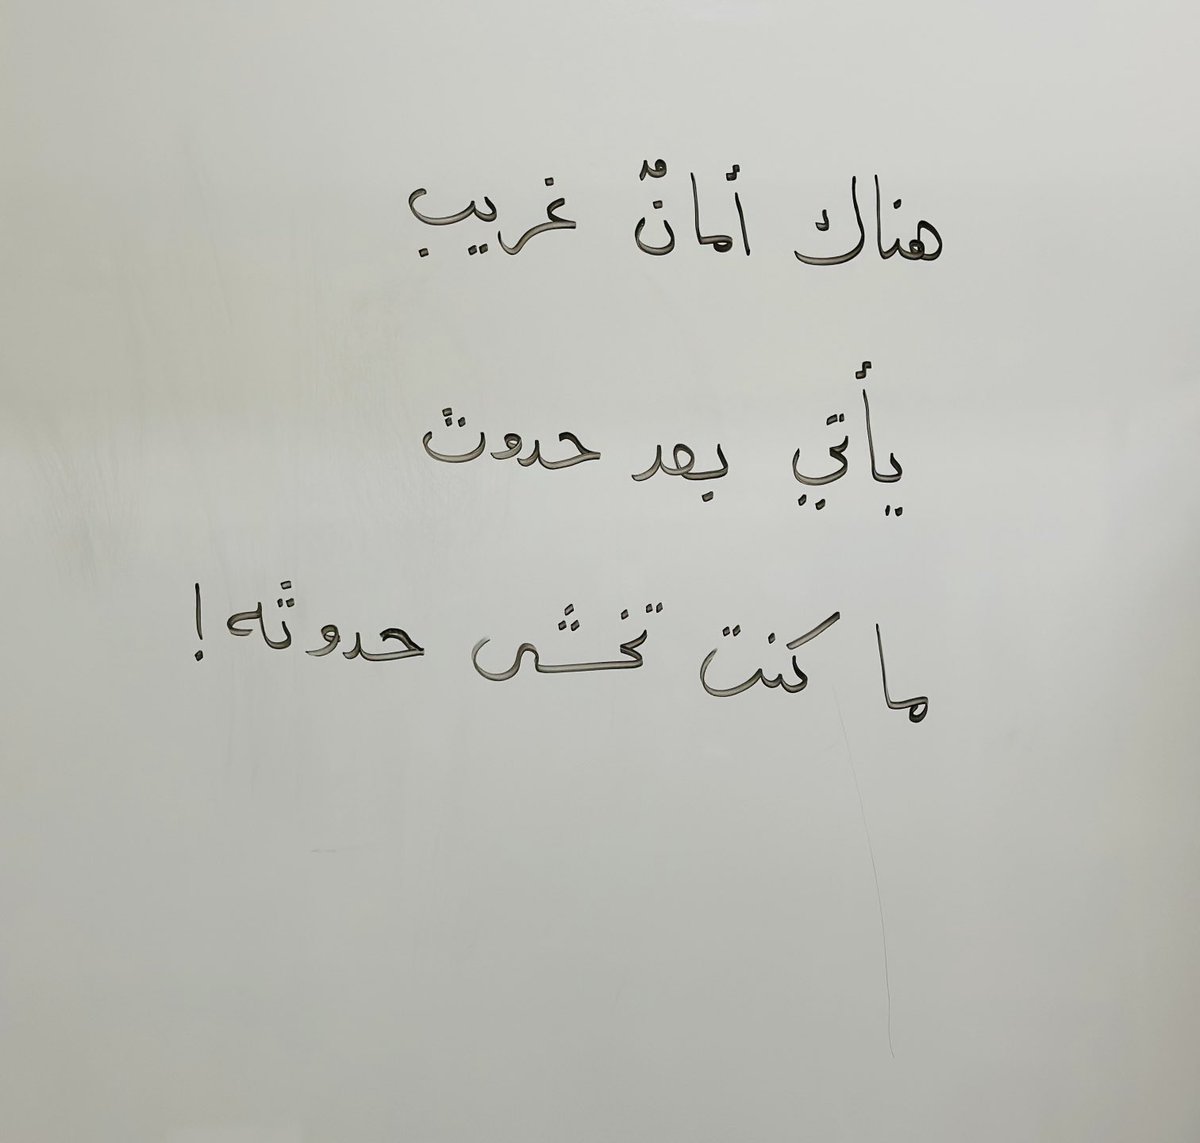 هناك أمانٌ غريب
يأتي بعد حدوث
ما كنت تخشى حدوثه!